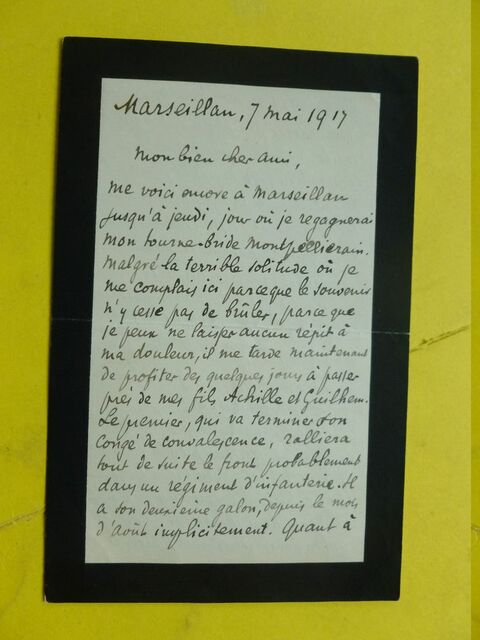 Marseillan, 7 mai 1917
Mon bien cher ami,
me voici encore à Marseillan
jusqu'à jeudi, jour où je regagnerai
mon tourne-bride Montpelliérain.
Malgré la terrible solitude où je
me complais ici parceque le souvenir
n'y cesse pas de brûler, parce que
je peux ne laisser aucun répit à
ma douleur, il me tarde maintenant
de profiter des quelques jours à passer
près de mes fils, Achille et Guilhem.
Le premier, qui va terminer son
congé de convalescence, ralliera
tout de suite le front probablement
dans un régiment d'infanterie. Il
a son deuxième galon, depuis le mois
d'août implicitement. Quant à